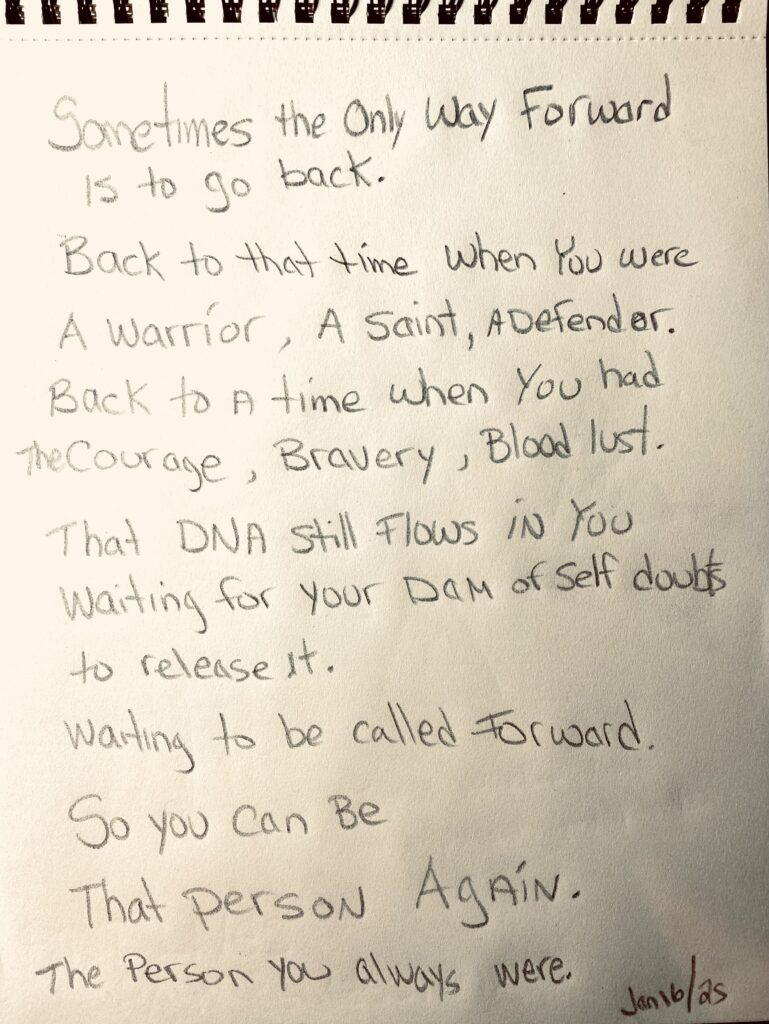 Sometimes the Only Way Forward
is to go back.
Back to that time when You were
A Warrior, A Saint, A Defender.
Back to A time when You had
The Courage, Bravery, Blood lust.
That DNA still Flows in You
Waiting for your Dam of Self doubts
to release it.
Waiting to be called Forward.
So you can Be
That person Again.
The Person you always were.
Jan 16/25